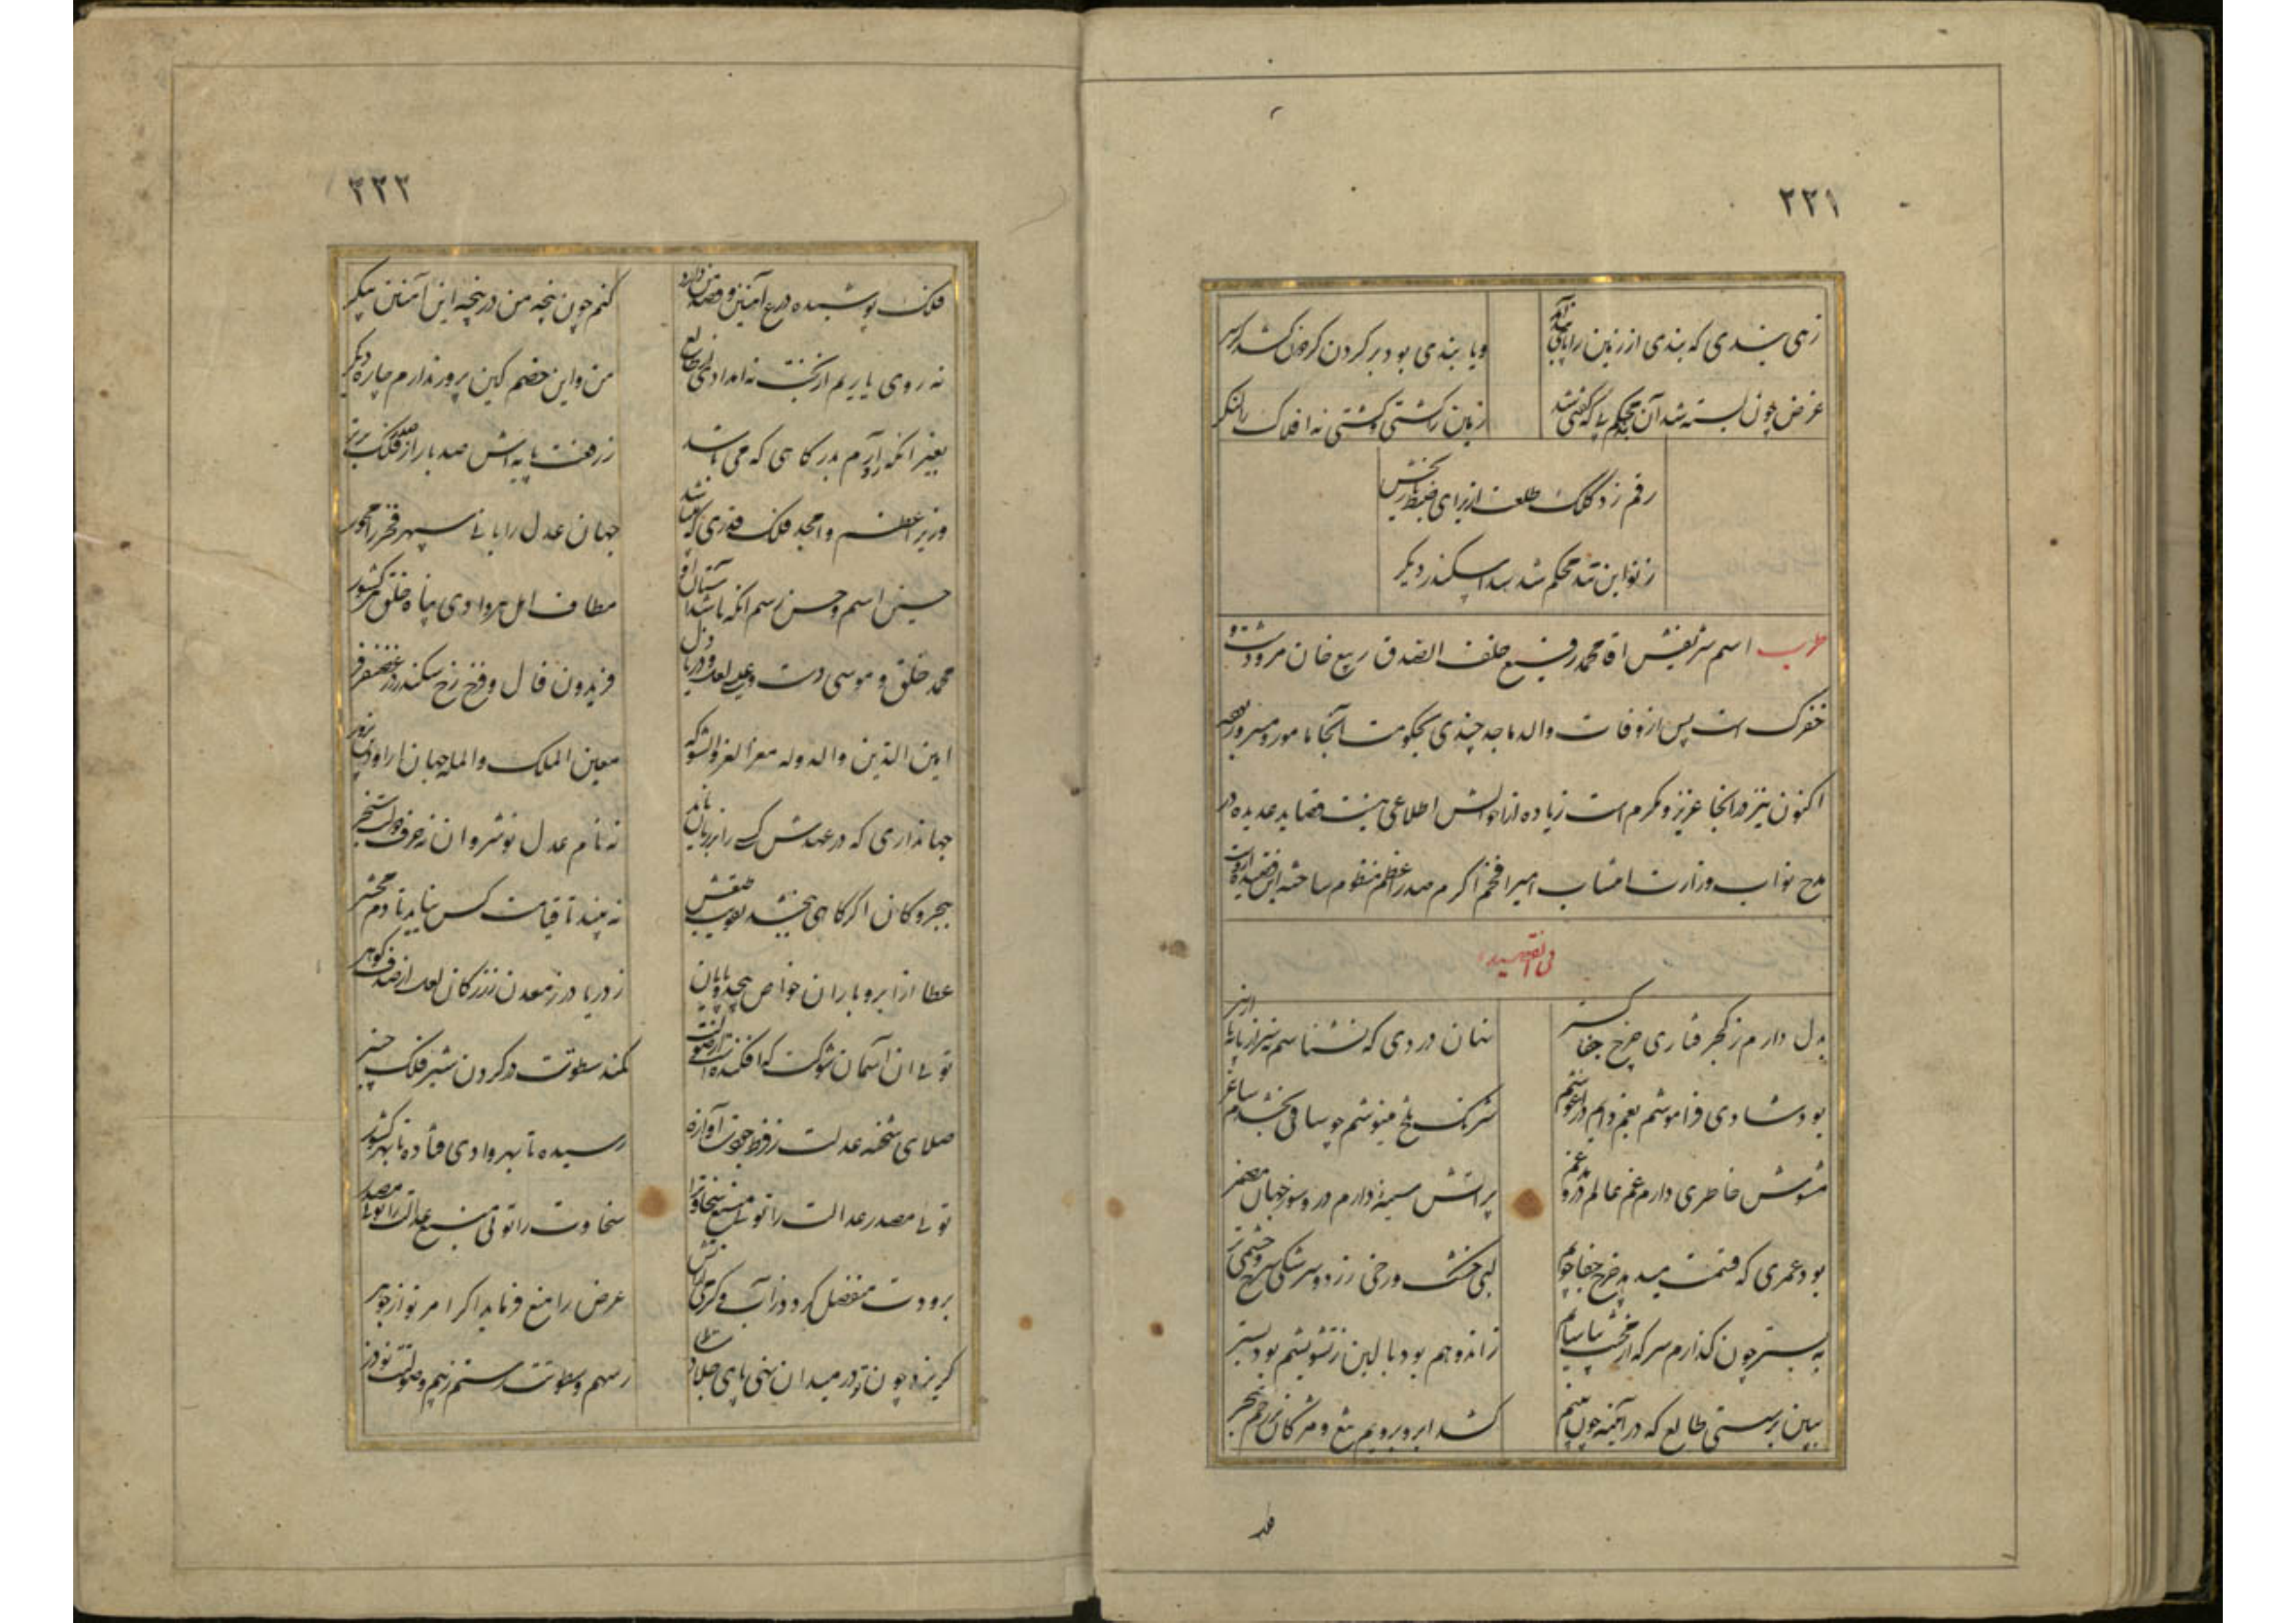 ۲۲۱
زهی بندی که بندی از زمین را پای بند آمد
ویا بندی بود بر گردن گردون کشد بر سر
غرض چون بسته شد آن بند محکم پی که گفتی شد
زمین را کشتی و کشتی نه افلاک را لنگر
رقم زد کلک طلعت از برای ضبط تاریخش
ز نو این بند محکم شد سد اسکندر دیگر
طرب اسم شریفش اقا محمد رفیع خلف الصدق ربیع خان مرودشت و
خفرک است پس از وفات والد ماجد چندی بحکومت آنجا مامور و مسرور بوده
اکنون نیز در آنجا عزیز و مکرم است زیاده از احوالش اطلاعی نیست قصاید عدیده در
مدح نواب وزارت انتساب امیر افخم اکرم صدر اعظم منظوم ساخته این قصیده از وست
فی القصیده
بدل دارم ز کجرفتاری چرخ جفا گستر
ننان دردی که نشناسم سر از پا پا از سر
بود شادی فراموشم بغم دایم در آغوشم
شرنگ تلخ مینوشم چو ساقی بخشدم ساغر
مشوش خاطری دارم غم عالم درو مدغم
پر آتش سینهٔ دارم درو سوز جهان مضمر
بود عمری که قسمت میدهد چرخ جفا جویم
لبی خشک و رخی زرد و سرشکی سرخ و چشمی تر
به بستر چون گذارم سر که از بخت سیاه
ز اندوهم بود بالین ز تشویشم بود بستر
ببین برگشتی طالع که در آئینه چون بینم
کشد ابرو برویم تیغ و مژگان بر رخم خنجر
۲۲۲
فلک پوشیده درع آهنین و قصد من دارد
کنم چون پنجه من در پنجه این آهنین پیکر
نه روی یاریم از بخت نه امدادی از طالع
من و این خصم کین پرور ندارم چاره دیگر
بغیر انکه رو آرم بدرگاهی که می باشد
ز رفعت پایه اش صد بار از فلک برتر
وزیر اعظم و امجد فلک قدری که میباشد
جهان عدل را بانی سپهر فخر را محور
حسین اسم و حسن رسم انکه باشد آستان او
مطاف اهل هر وادی پناه خلق هر کشور
محمد خلق و موسی دست و عیسی لعل و دریا دل
فریدون فال و فرخ رخ سکندر در غضنفر فر
امین الدین والدوله معز العز والشوکه
معین الملک والمله جهان را داور
جهانداری که در عهدش کسی را بر زبان ناید
نه نام عدل نوشروان نه حرف دولت سنجر
ببحر و کان اگر گاهی ببخشد
نه بیند تا قیامت کس نیابد تا دم محشر
عطا از ابر و باران خواص بیحد و پایان
ز دریا در ز معدن زر ز کان لعل از صدف گوهر
توئی ان آسمان شوکت که افکنده است از صولت
کمند سطوتت در گردن شیر فلک چنبر
صلای شحنه عدلت
رسیده تا بهر وادی فتاده تا بهر کشور
توئی مصدر عدالت را توئی منبع سخاوت را
سخاوت را توئی منبع عدالت را توئی مصدر
برودت منفصل گردد ز آب و گرمی از آتش
عرض را منع فرماید اگر امر تو از جوهر
گریزد چون تو در میدان نهی پای جلادت را
ز سهم و سطوتت رستم ز بیم و صولتت نوذر